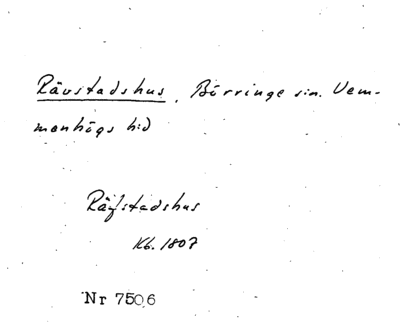 Rävstadshus, Börringe sn. Vem-
menhögs hd
Räfstadshus
Kb. 1807
Nr 7506